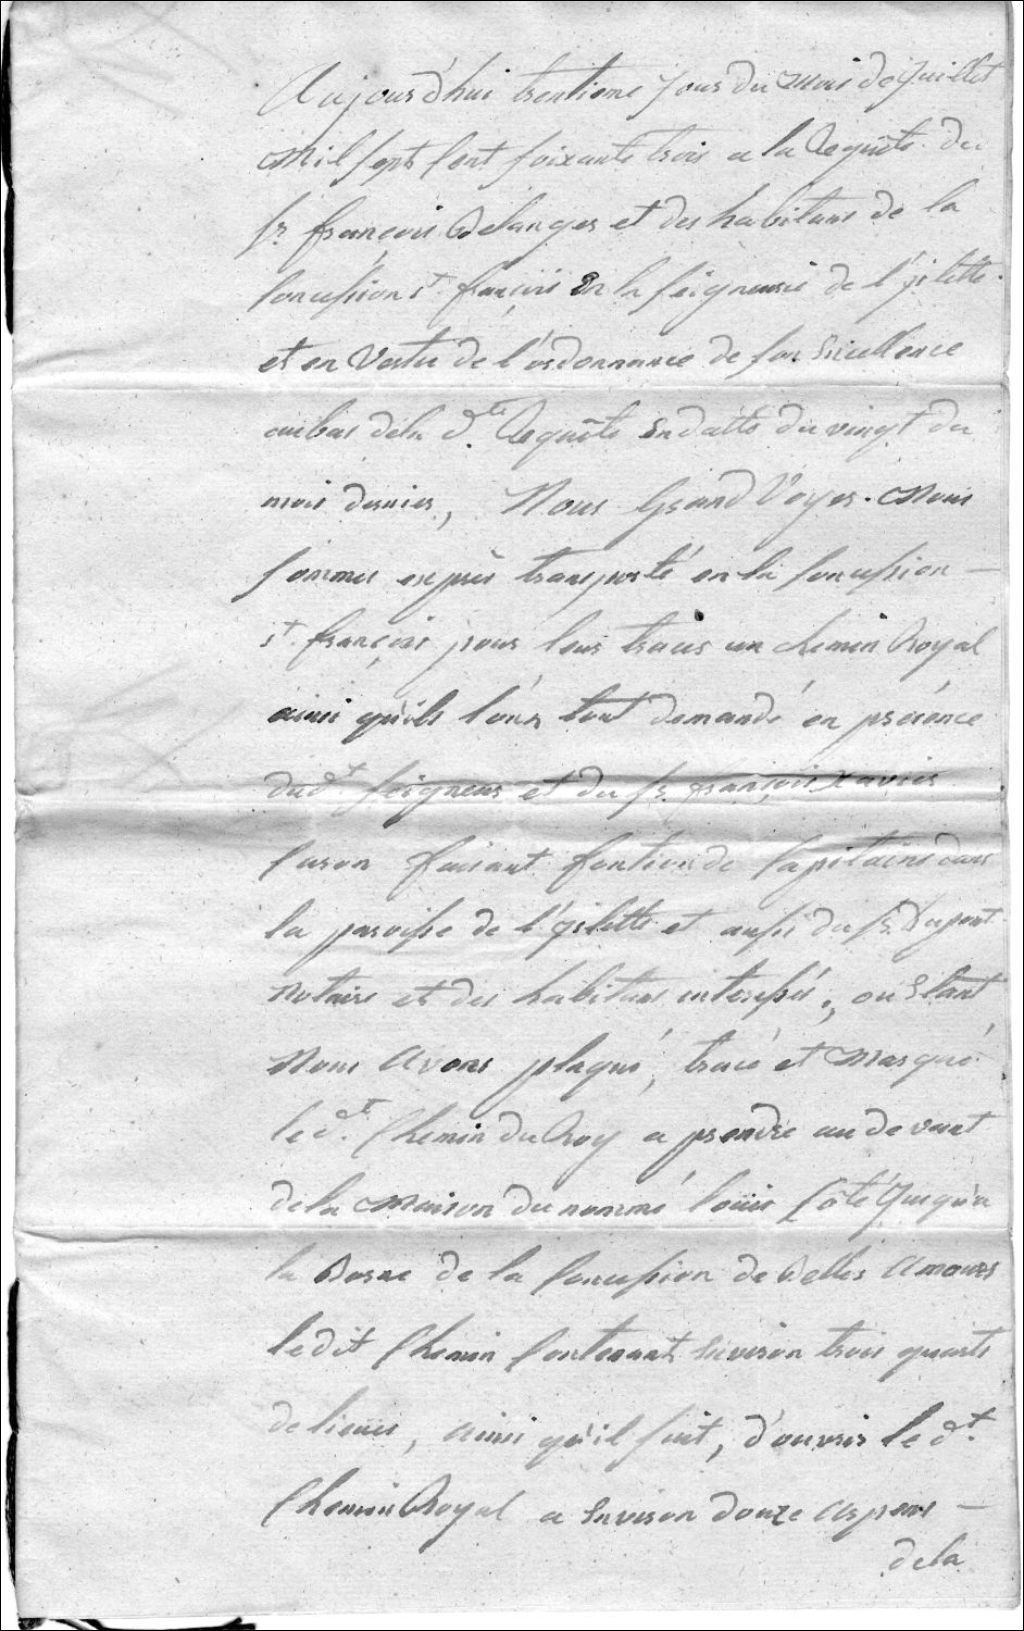 Aujourd'hui trentieme Jour du Mois de Juillet
Mil sept Cent soixante trois a la Requête du
Sr. françois Belanger et des habitans de la
Concession st. françois En la seigneurie de l'jslette.
et en Vertu de l'ordonnance de son Excellence
au bas de la dte. Requête En datte du vingt du
mois dernier, Nous Grand Voyer. Nous
sommes exprès transporté en la Concession —
st. françois pour leur tracer un chemin Royal
ainsi qu'ils l'ont tout demandé en présence
dud.t seigneur et du Sr. françois Xavier
Caron faisant fontion de Capitaine dans
la paroisse de l'jslette et aussi du Sr. Dupont
Notaire et des habitans interessés, ou Etant
Nous Avons plaqué, tracé et Marqué
led.t Chemin du Roy a prendre au devant
de la Maison du nommé loüis Côté Jusqu'a
la Borne de la Concession de Belles Amours
le dit Chemin Contenant Environ trois quarts
de lieües, ainsi qu'il suit, d'ouvrir le d.t
Chemin Royal a Environ douze Arpens —
de la